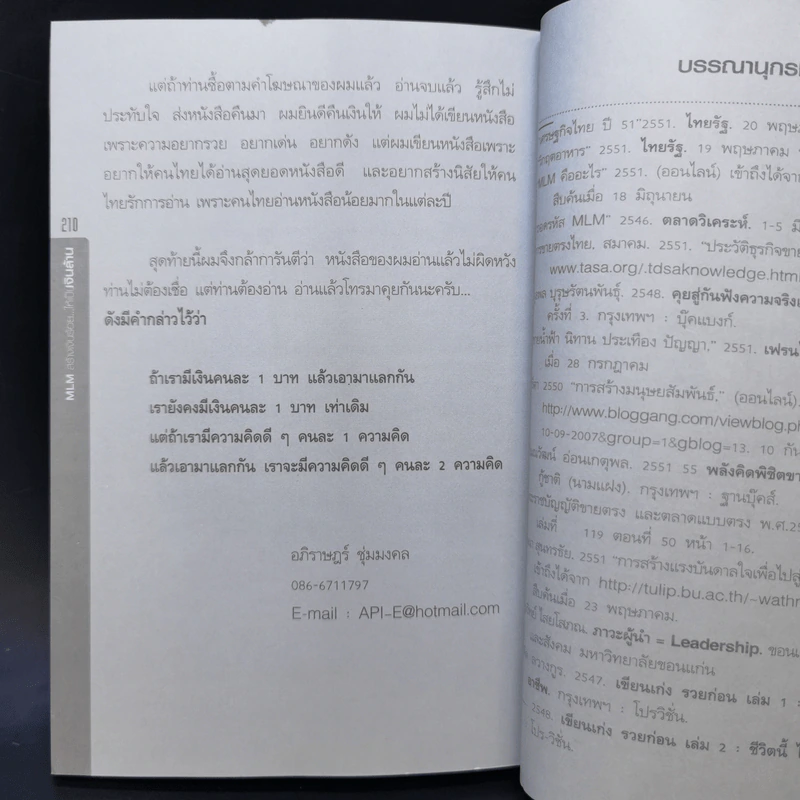 แต่ถ้าท่านซื้อตามคำโฆษณาของผมแล้ว อ่านจบแล้ว รู้สึกไม่
ประทับใจ ส่งหนังสือคืนมา ผมยินดีคืนเงินให้ ผมไม่ได้เขียนหนังสือ
เพราะความอยากรวย อยากเด่น อยากดัง แต่ผมเขียนหนังสือเพราะ
อยากให้คนไทยได้อ่านสุดยอดหนังสือดี และอยากสร้างนิสัยให้คน
ไทยรักการอ่าน เพราะคนไทยอ่านหนังสือน้อยมากในแต่ละปี
210
MLM
เงินล้าน
สุดท้ายนี้ผมจึงกล้าการันตีว่า หนังสือของผมอ่านแล้วไม่ผิดหวัง
ท่านไม่ต้องเชื่อ แต่ท่านต้องอ่าน อ่านแล้วโทรมาคุยกันนะครับ...
ดังมีคำกล่าวไว้ว่า
ถ้าเรามีเงินคนละ 1 บาท แล้วเอามาแลกกัน
เรายังคงมีเงินคนละ 1 บาท เท่าเดิม
แต่ถ้าเรามีความคิดดี ๆ คนละ 1 ความคิด
แล้วเอามาแลกกัน เราจะมีความคิดดี ๆ คนละ 2 ความคิด
อภิราษฎร์ ชุ่มมงคล
086-6711797
E-mail : API-E@hotmail.com
บรรณานุกรม
เศรษฐกิจไทย ปี 51"2551. ไทยรัฐ. 20 พฤษภ
วิกฤตอาหาร" 2551. ไทยรัฐ. 19 พฤษภาคม
MLM คืออะไร" 2551. (ออนไลน์) เข้าถึงได้จาก
สืบค้นเมื่อ 18 มิถุนายน
รหัส MLM" 2546. ตลาดวิเคราะห์. 1-5 มี
การขายตรงไทย. สมาคม. 2551. "ประวัติธุรกิจขาย
www.tasa.org/.tdsaknowledge.htm
บุรุษรัตนพันธุ์. 2548. คุยสู่กันฟังความจริง
ครั้งที่ 3. กรุงเทพฯ : บุ๊คแบงก์.
น้ำฟ้า นิทาน ประเทือง ปัญญา," 2551. เฟรน
เมื่อ 28 กรกฎาคม
2550 "การสร้างมนุษยสัมพันธ์," (ออนไลน์).
http://www.bloggang.com/viewblog.ph
10-09-2007&group=1&gblog=13. 10 กัน
อ่อนเกตุพล. 2551 55 พลังคิดพิชิตขา
กู้ชาติ (นามแฝง). กรุงเทพฯ : ฐานบุ๊คส์.
ราชบัญญัติขายตรง และตลาดแบบตรง พ.ศ.25
เล่มที่ 119 ตอนที่ 50 หน้า 1-16.
สุนทรชัย. 2551 "การสร้างแรงบันดาลใจเพื่อไปสู่
เข้าถึงได้จาก http://tulip.bu.ac.th/~wathn
สืบค้นเมื่อ 23 พฤษภาคม.
ไสยโสภณ. ภาวะผู้นำ = Leadership. ขอนแ
และสังคม มหาวิทยาลัยขอนแก่น
กวางกูร. 2547. เขียนเก่ง รวยก่อน เล่ม 1 :
อาชีพ. กรุงเทพฯ : โปรวิชั่น.
2548. เขียนเก่ง รวยก่อน เล่ม 2 : ชีวิตนี้
โปรวิชั่น.